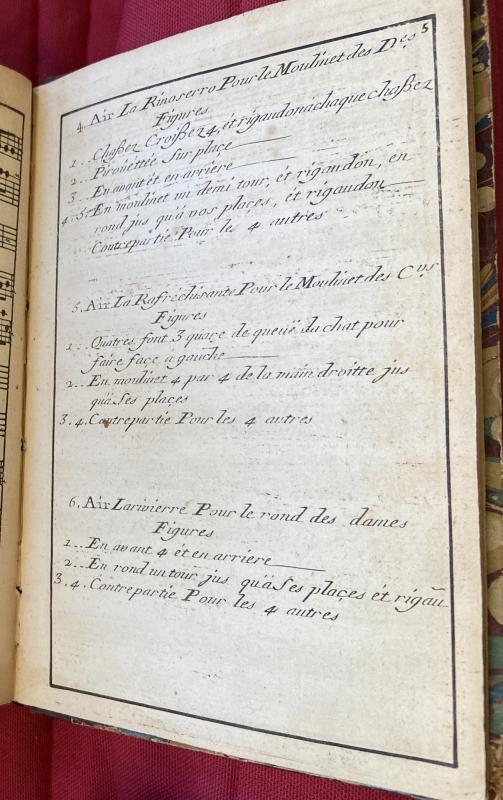 5
4. Air La Rinoserro Pour le Moulinet des D.es
Figures
1.. Chaßez Croißez 4, ét rigaudon a chaque chaßez
2.. Pirouéttée Sur place
3.. En avant ét en arriere
4. 5. En moulinet un demi tour, ét rigaudon, en
rond jus qu'à nos places, ét rigaudon
Contrepartie Pour les 4 autres
5. Air La Rafréchisante Pour le Moulinet des C.ers
Figures
1.. Quatres font 3 quaçe de queuë du chat pour
faire façe a gauche
2.. En moulinet 4 par 4 de la main droitte jus
qu'à Ses places
3. 4. Contrepartie Pour les 4 autres
6. Air Larivierre Pour le rond des dames
Figures
1.. En avant 4 ét en arriere
2.. En rond un tour jus qu'à Ses plaçes ét rigāu
3. 4. Contrepartie Pour les 4 autres